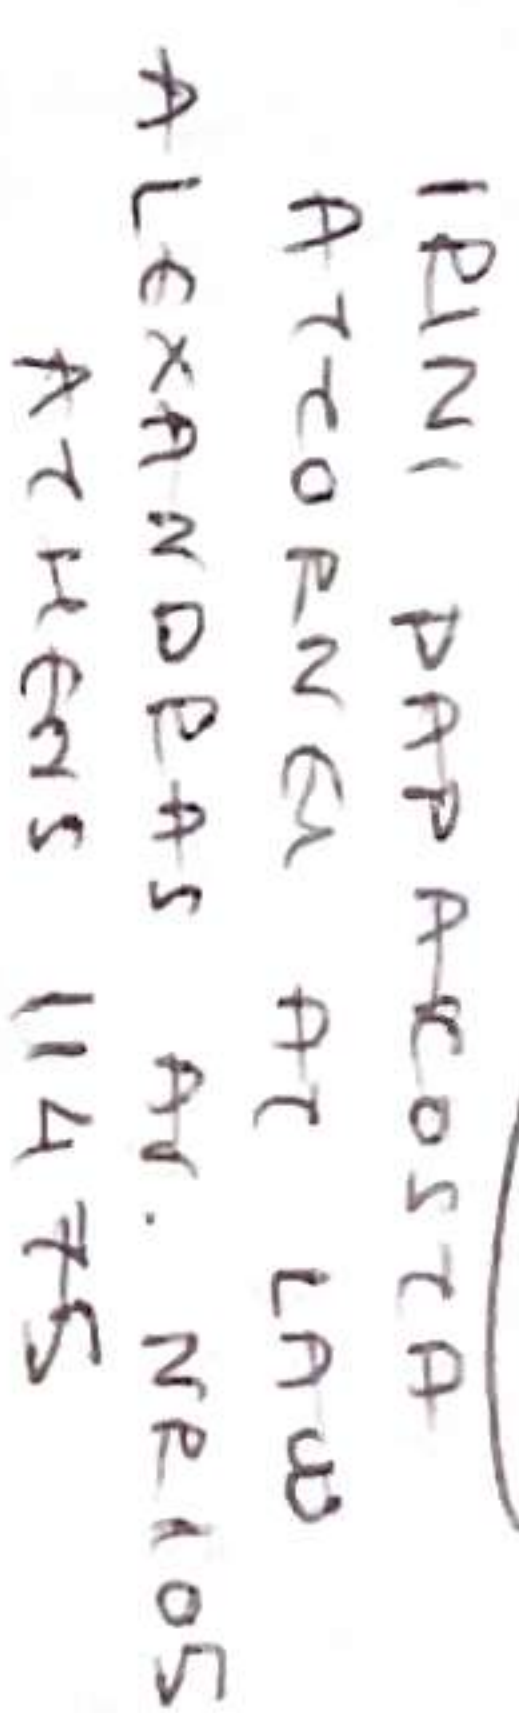 IRINI PAPAKOSTA
ATTORNEY AT LAW
ALEXANDRAS AV. NR105
ATHENS 11475